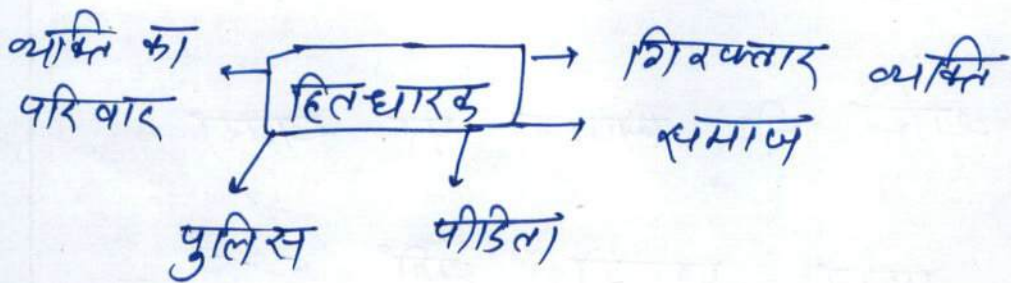 व्यक्ति का
परिवार
हितधारक
गिरफ्तार व्यक्ति
समाज
पुलिस
पीडिता